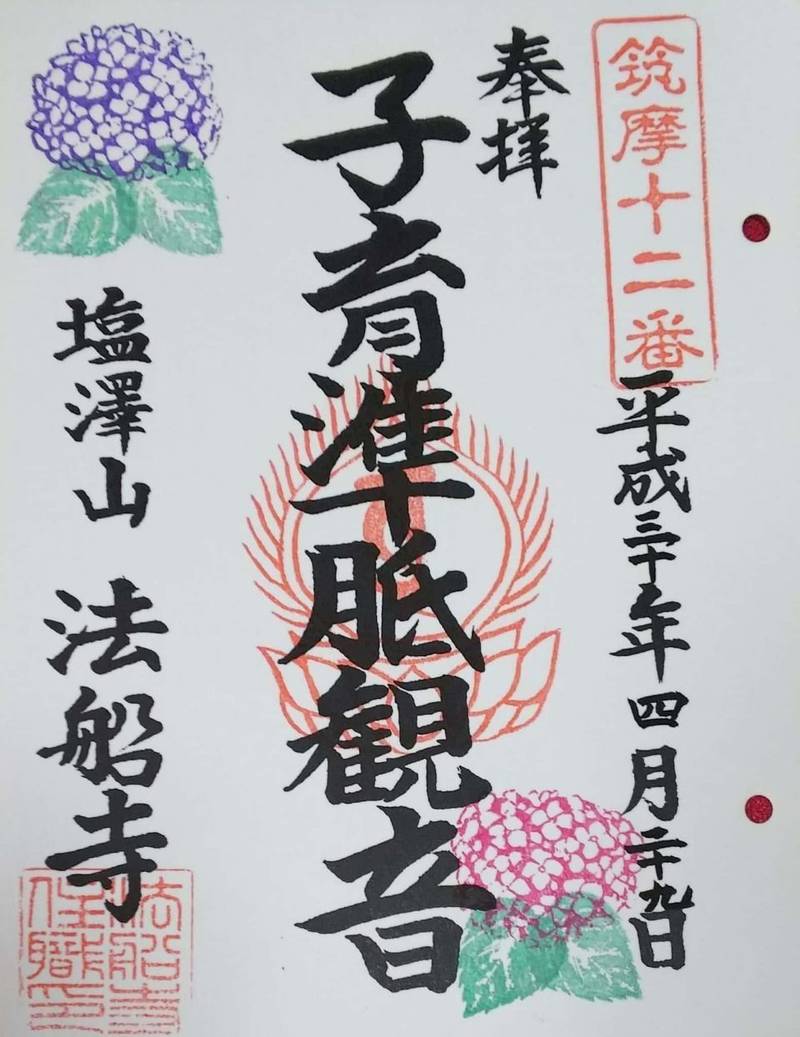 筑摩十二番
平成三十年四月二十九日
奉拝
子育準胝観音
塩澤山 法船寺
法船寺
住職印